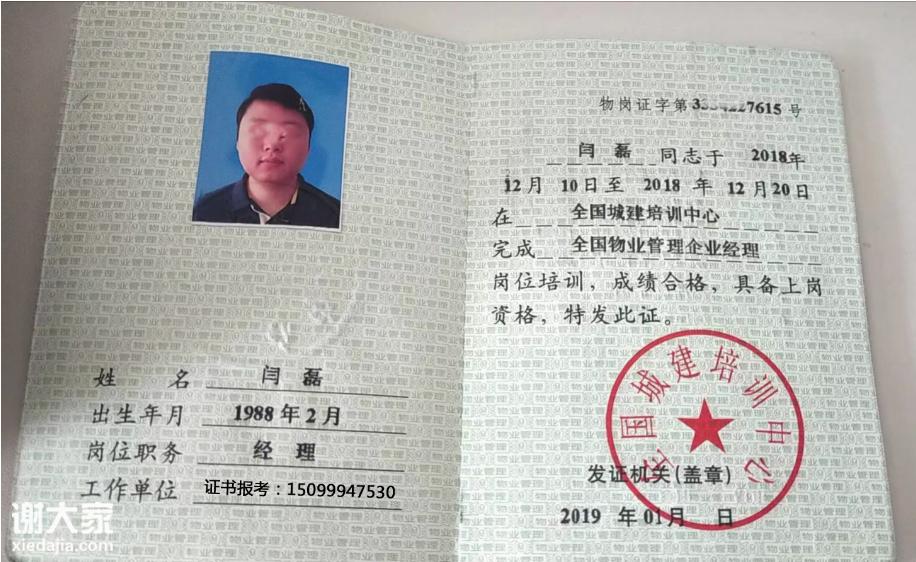 姓 名 闫 磊
出生年月 1988 年 2 月
岗位职务 经 理
工作单位 证书报考：15099947530
谢大家
xiedajia.com
物岗证字第3334227615号
闫 磊 同志于 2018年
12月 10日至 2018 年 12月20日
在 全国城建培训中心
完成 全国物业管理企业经理
岗位培训，成绩合格，具备上岗
资格，特发此证。
全国城建培训中心
发证机关(盖章)
2019 年 01月 日